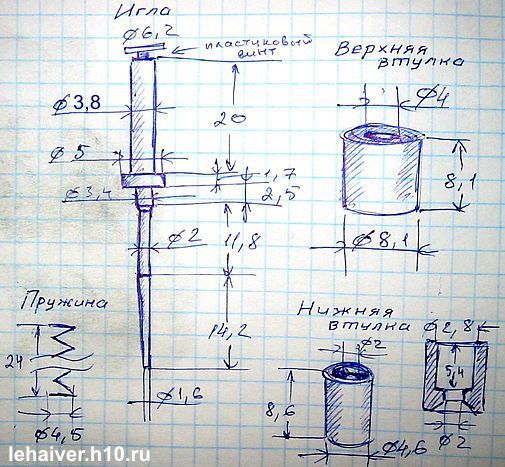 Игла
Ø6,2
пластуковый
винт
Ø3,8
20
Ø5
1,7
Ø3,4
2,5
Ø2
11,8
14,2
Ø1,6
Верхняя
втулка
Ø4
8,1
Ø8,1
Пружина
24
Ø4,5
Нижняя
втулка
Ø2
8,6
Ø4,6
Ø2,8
5,4
Ø2
lehaiver.h10.ru